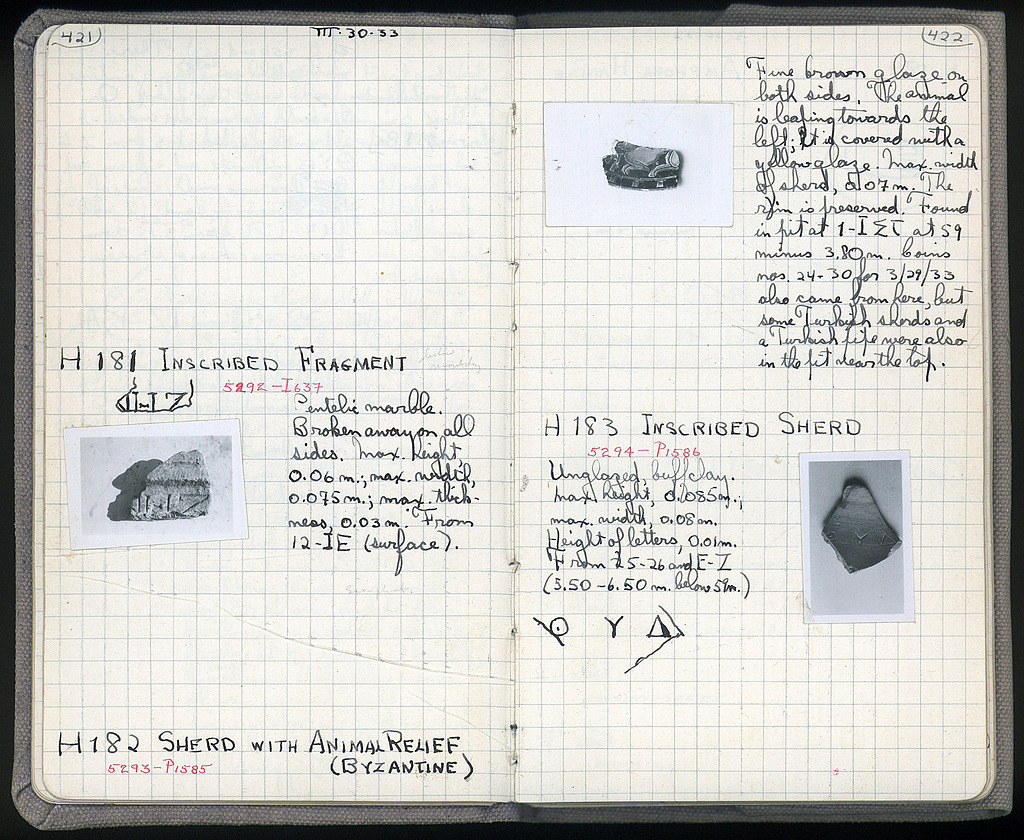 421
III·30·33
H 181 INSCRIBED FRAGMENT
5292-I637
Pentelic marble.
Broken away on all
sides. Max. height,
0.06 m.; max. width,
0.075 m.; max. thick-
ness, 0.03 m. From
12-ΙΕ (surface).
H 182 SHERD WITH ANIMAL RELIEF
5293-P1585
(BYZANTINE)
422
Fine brown glaze on
both sides. The animal
is leaping towards the
left; it is covered with a
yellow glaze. Max. width
of sherd, 0.07 m. The
rim is preserved. Found
in pit at 1-ΙΣΤ at 59
minus 3.80 m. Coins
nos. 24-30 for 3/29/33
also came from here, but
some Turkish sherds and
a Turkish pipe were also
in the pit near the top.
H 183 INSCRIBED SHERD
5294-P1586
Unglazed, buff clay.
Max. height, 0.085 m.;
max. width, 0.08 m.
Height of letters, 0.01 m.
From 25-26 and Ε-Ζ
(5.50-6.50 m. below 59 m.)
Ο Υ Δ